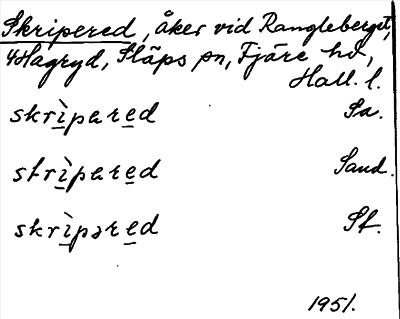 Skripered, åker vid Rangleberget,
4 Hagryd, Släps sn, Fjäre hd,
Hall. l.
skrìpared Sa.
strìpared Sand.
skrìpəred St.
1951.